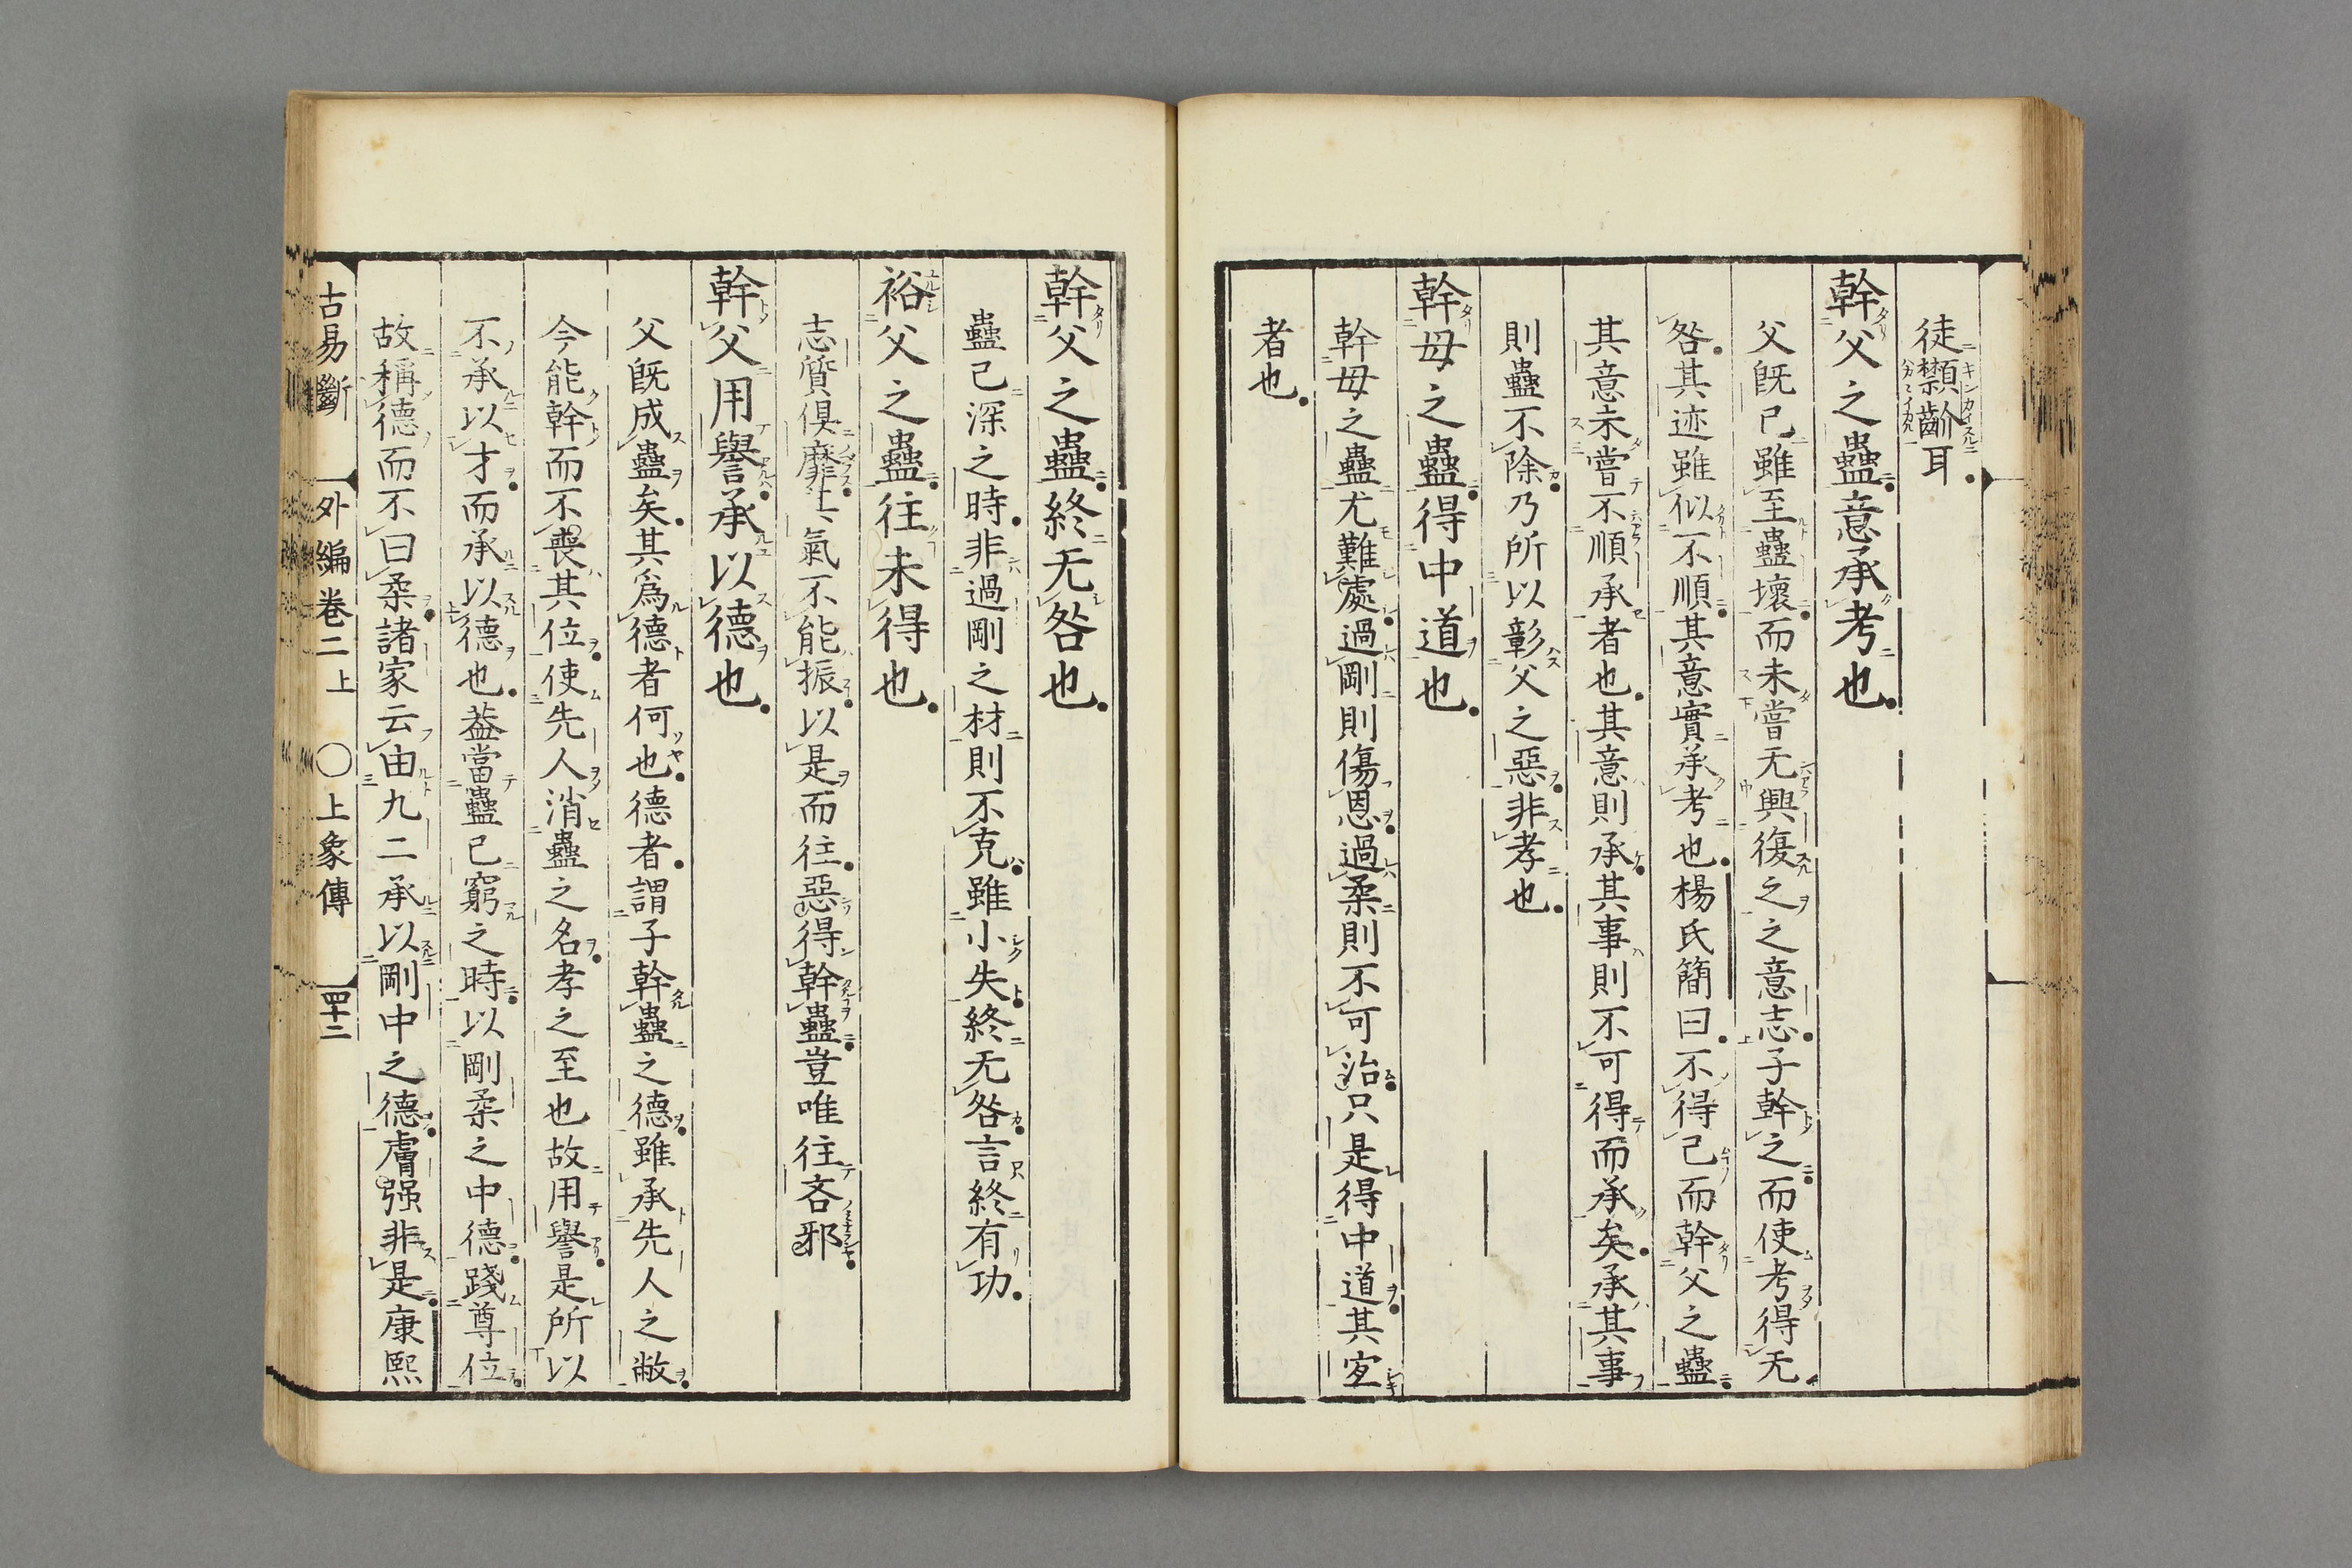 徒齘耳
幹父之蠱意承考也
父既已雖至蠱壞而未嘗无興復之之意志子幹之而使考得无
咎其迹雖似不順其意實承考也楊氏簡曰不得已而幹父之蠱
其意未嘗不順承者也其意則承其事則不可得而承矣承其事
則蠱不除乃所以彰父之惡非孝也
幹母之蠱得中道也
幹母之蠱尤難處過剛則傷恩過柔則不可治只是得中道其宜
者也
幹父之蠱終无咎也
蠱已深之時非過剛之材則不克雖小失終无咎言終有功
裕父之蠱往未得也
志質俱靡士氣不能振以是而往惡得幹蠱豈唯往吝邪
幹父用譽承以德也
父既成蠱矣其爲德者何也德者謂子幹蠱之德雖承先人之敝
今能幹而不喪其位使先人消蠱之名孝之至也故用譽是所以
不承以才而承以德也葢當蠱已窮之時以剛柔之中德踐尊位
故稱德而不曰柔諸家云由九二承以剛中之德膚强非是康熙
古易斷 外編卷二上 ○上象傳 四十二